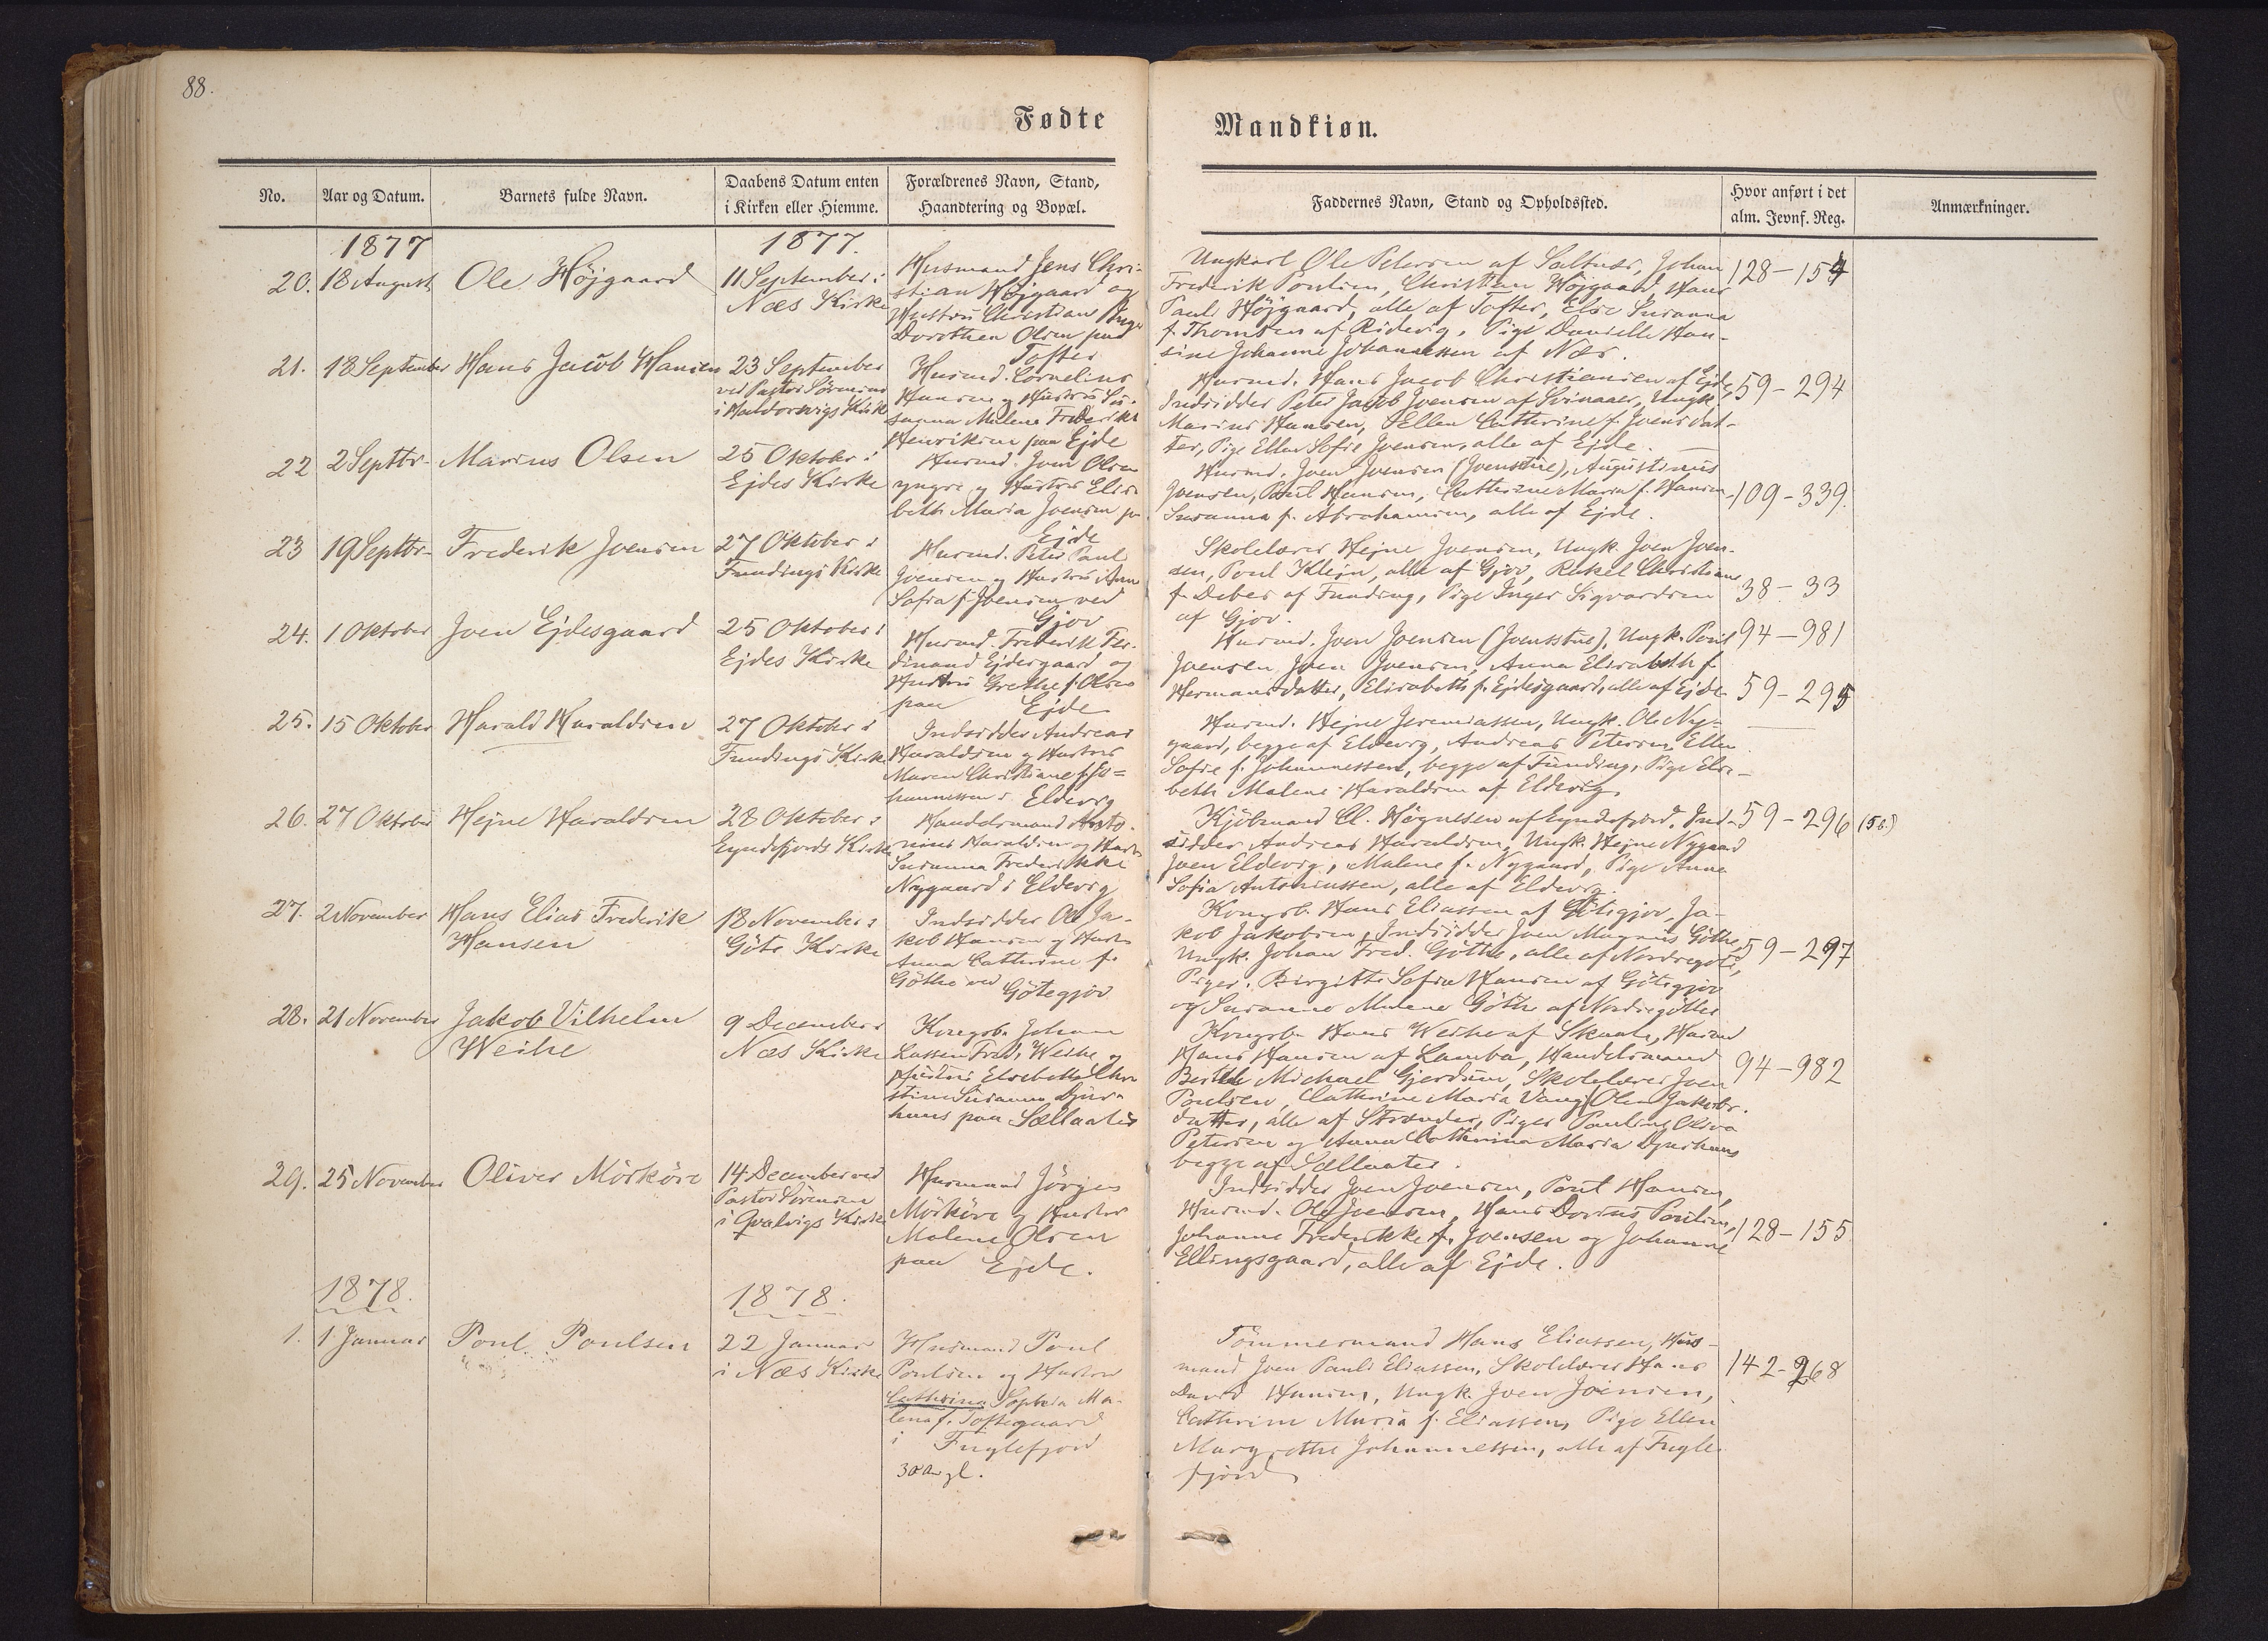 88.
Fødte
Mandkiøn.
No.
Aar og Datum.
Barnets fulde Navn.
Daabens Datum enten
i Kirken eller Hiemme.
Forældrenes Navn, Stand,
Haandtering og Bopæl.
Faddernes Navn, Stand og Opholdssted.
Hvor anført i det
alm. Jevnf. Reg.
Anmærkninger.
1877
1877.
20. 18 August Ole Höjgaard
11 September i
Næs Kirke
Husmand Jens Chri-
stian Höjgaard og
Hustru Christian Inger
Dorothea Olsen paa
Tofter
Ungkarl Ole Petersen af Saltnæs, Johan
Frederik Poulsen, Christian Höjgaard, Hans
Pauli Höjgaard, alle af Tofter, Else Susanna
f. Thomsen af Ridevig, Pige Danielle Han-
sine Johanne Johannessen af Næs.
128-154
21. 18 September Hans Jacob Hansen
23 September
ved Pastor Sörensen
i Haldorsvigs Kirke
Husmd. Cornelius
Hansen og Hustru Su-
sanna Malene Frederikke
Henriksen paa Ejde
Husmd. Hans Jacob Christiansen af Ejde,
Indsidder Peter Jacob Joensen af Svinaaer, Ungk.
Marius Hansen, Ellen Cathrine f. Joensdat-
ter, Pige Ellen Sofie Joensen, alle af Ejde.
59-294
22 2 Septbr. Marius Olsen
25 Oktober i
Ejdes Kirke
Husmd. Joen Olsen
yngre og Hustru Elisa-
beth Maria Joensen paa
Ejde
Husmd. Joen Joensen (Joensstue), Augustinus
Joensen, Poul Hansen, Cathrine Maria f. Hansen,
Susanna f. Abrahamsen, alle af Ejde.
109-339.
23 19 Septbr. Frederik Joensen
27 Oktober i
Fundings Kirke
Husmd. Peter Paul
Joensen og Hustru Anna
Sofia f. Joensen ved
Gjov
Skolelærer Hejne Joensen, Ungk. Joen Joen-
sen, Poul Klejn, alle af Gjov, Rakel Christiane
f. Debes af Funding, Pige Inger Sigvardsen
af Gjov.
38-33
24. 1 Oktober Joen Ejdesgaard
25 Oktober i
Ejdes Kirke
Husmd. Frederik Fer-
dinand Ejdesgaard og
Hustru Grethe f. Olsen
paa Ejde
Husmd. Joen Joensen (Joensstue), Ungk. Poul
Joensen, Joen Joensen, Anna Elisabeth f.
Hermansdatter, Elisabeth f. Ejdesgaard, alle af Ejde
94-981
25. 15 Oktober Harald Haraldsen
27 Oktober i
Fundings Kirke
Indsidder Andreas
Haraldsen og Hustru
Maren Christiane f. Jo-
hannessen i Eldevig
Husmd. Hejne Jeremiassen, Ungk. Ole Ny-
gaard, begge af Eldevig, Andreas Petersen, Ellen
Sofie f. Johannessen, begge af Funding, Pige Elsa-
beth Malene Haraldsen af Eldevig.
59-295
26. 27 Oktober Hejne Haraldsen
28 Oktober i
Eyndefjords Kirke
Handelsmand Anto-
nius Haraldsen og Hustru
Susanna Frederikke
Nygaard i Eldevig
Kjöbmand Cl. Högnesen af Eyndefjord, Ind-
sidder Andreas Haraldsen, Ungk. Hejne Nygaard
Joen Eldevig, Malene f. Nygaard, Pige Anna
Sofia Antoniussen, alle af Eldevig.
59-296 (58.)
27. 2 November Hans Elias Frederik
Hansen
18 November i
Göte Kirke
Indsidder Ole Ja-
kob Hansen og Hustru
Anna Cathrine f.
Göthe ved Götegjov
Kongsb. Hans Eliassen af Götegjov, Ja-
kob Jakobsen, Indsidder Joen Magnus Göthe,
Ungk. Johan Fred. Göthe, alle af Nordregöte,
Piger: Birgitte Sofia Hansen af Götegjov
og Susanne Malene Göthe af Nordregöthe
59-297
28. 21 November Jakob Vilhelm
Weihe
9 December i
Næs Kirke
Kongsb. Johan
Lassen Fred. Weihe og
Hustru Elsebeth Chri
stine Susanna Djur-
huus paa Sællaater
Kongsb. Hans Weihe af Skaale, Husmd
Hans Hansen af Lamba, Handelsmand
Berthel Michael Gjerdum, Skolelærer Joen
Poulsen, Cathrine Maria Vang f. Olen Jakobs-
datter, alle af Strænder, Piger Pauline Olivo
Petersen og Anna Cathrina Maria Djurhuus
begge af Sællaater.
94-982
29. 25 November Oliver Mörköre
14 December ved
Pastor Sörensen
i Qvalvigs Kirke
Husmand Jörgen
Mörköre og Hustru
Malene Olsen
paa Ejde.
Indsidder Joen Joensen, Poul Hansen,
Husmd. Ole Joensen, Hans Dorius Poulsen,
Johanne Frederikke f. Joensen og Johanne
Ellingsgaard, alle af Ejde.
128-155
1878.
1878.
1. 1 Januar Poul Poulsen
22 Januar
i Næs Kirke
Husmand Poul
Poulsen og Hustru
Cathrina Sophia Ma-
lena f. Toftegaard
i Fuglefjord
30 Aar gl.
Tömmermand Hans Eliassen, Hus-
mand Joen Pauli Eliassen, Skolelærer Hans
David Hansen, Ungk. Joen Joensen,
Cathrine Maria f. Eliassen, Pige Ellen
Margrethe Johannessen, alle af Fugle
fjord
142-268